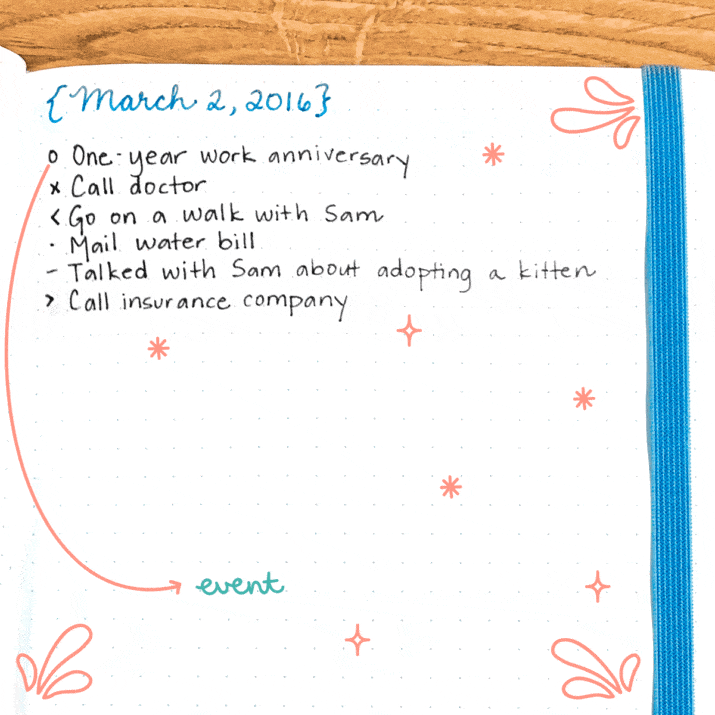 {March 2, 2016}
o One-year work anniversary
x Call doctor
< Go on a walk with Sam
· Mail water bill
- Talked with Sam about adopting a kitten
> Call insurance company
event